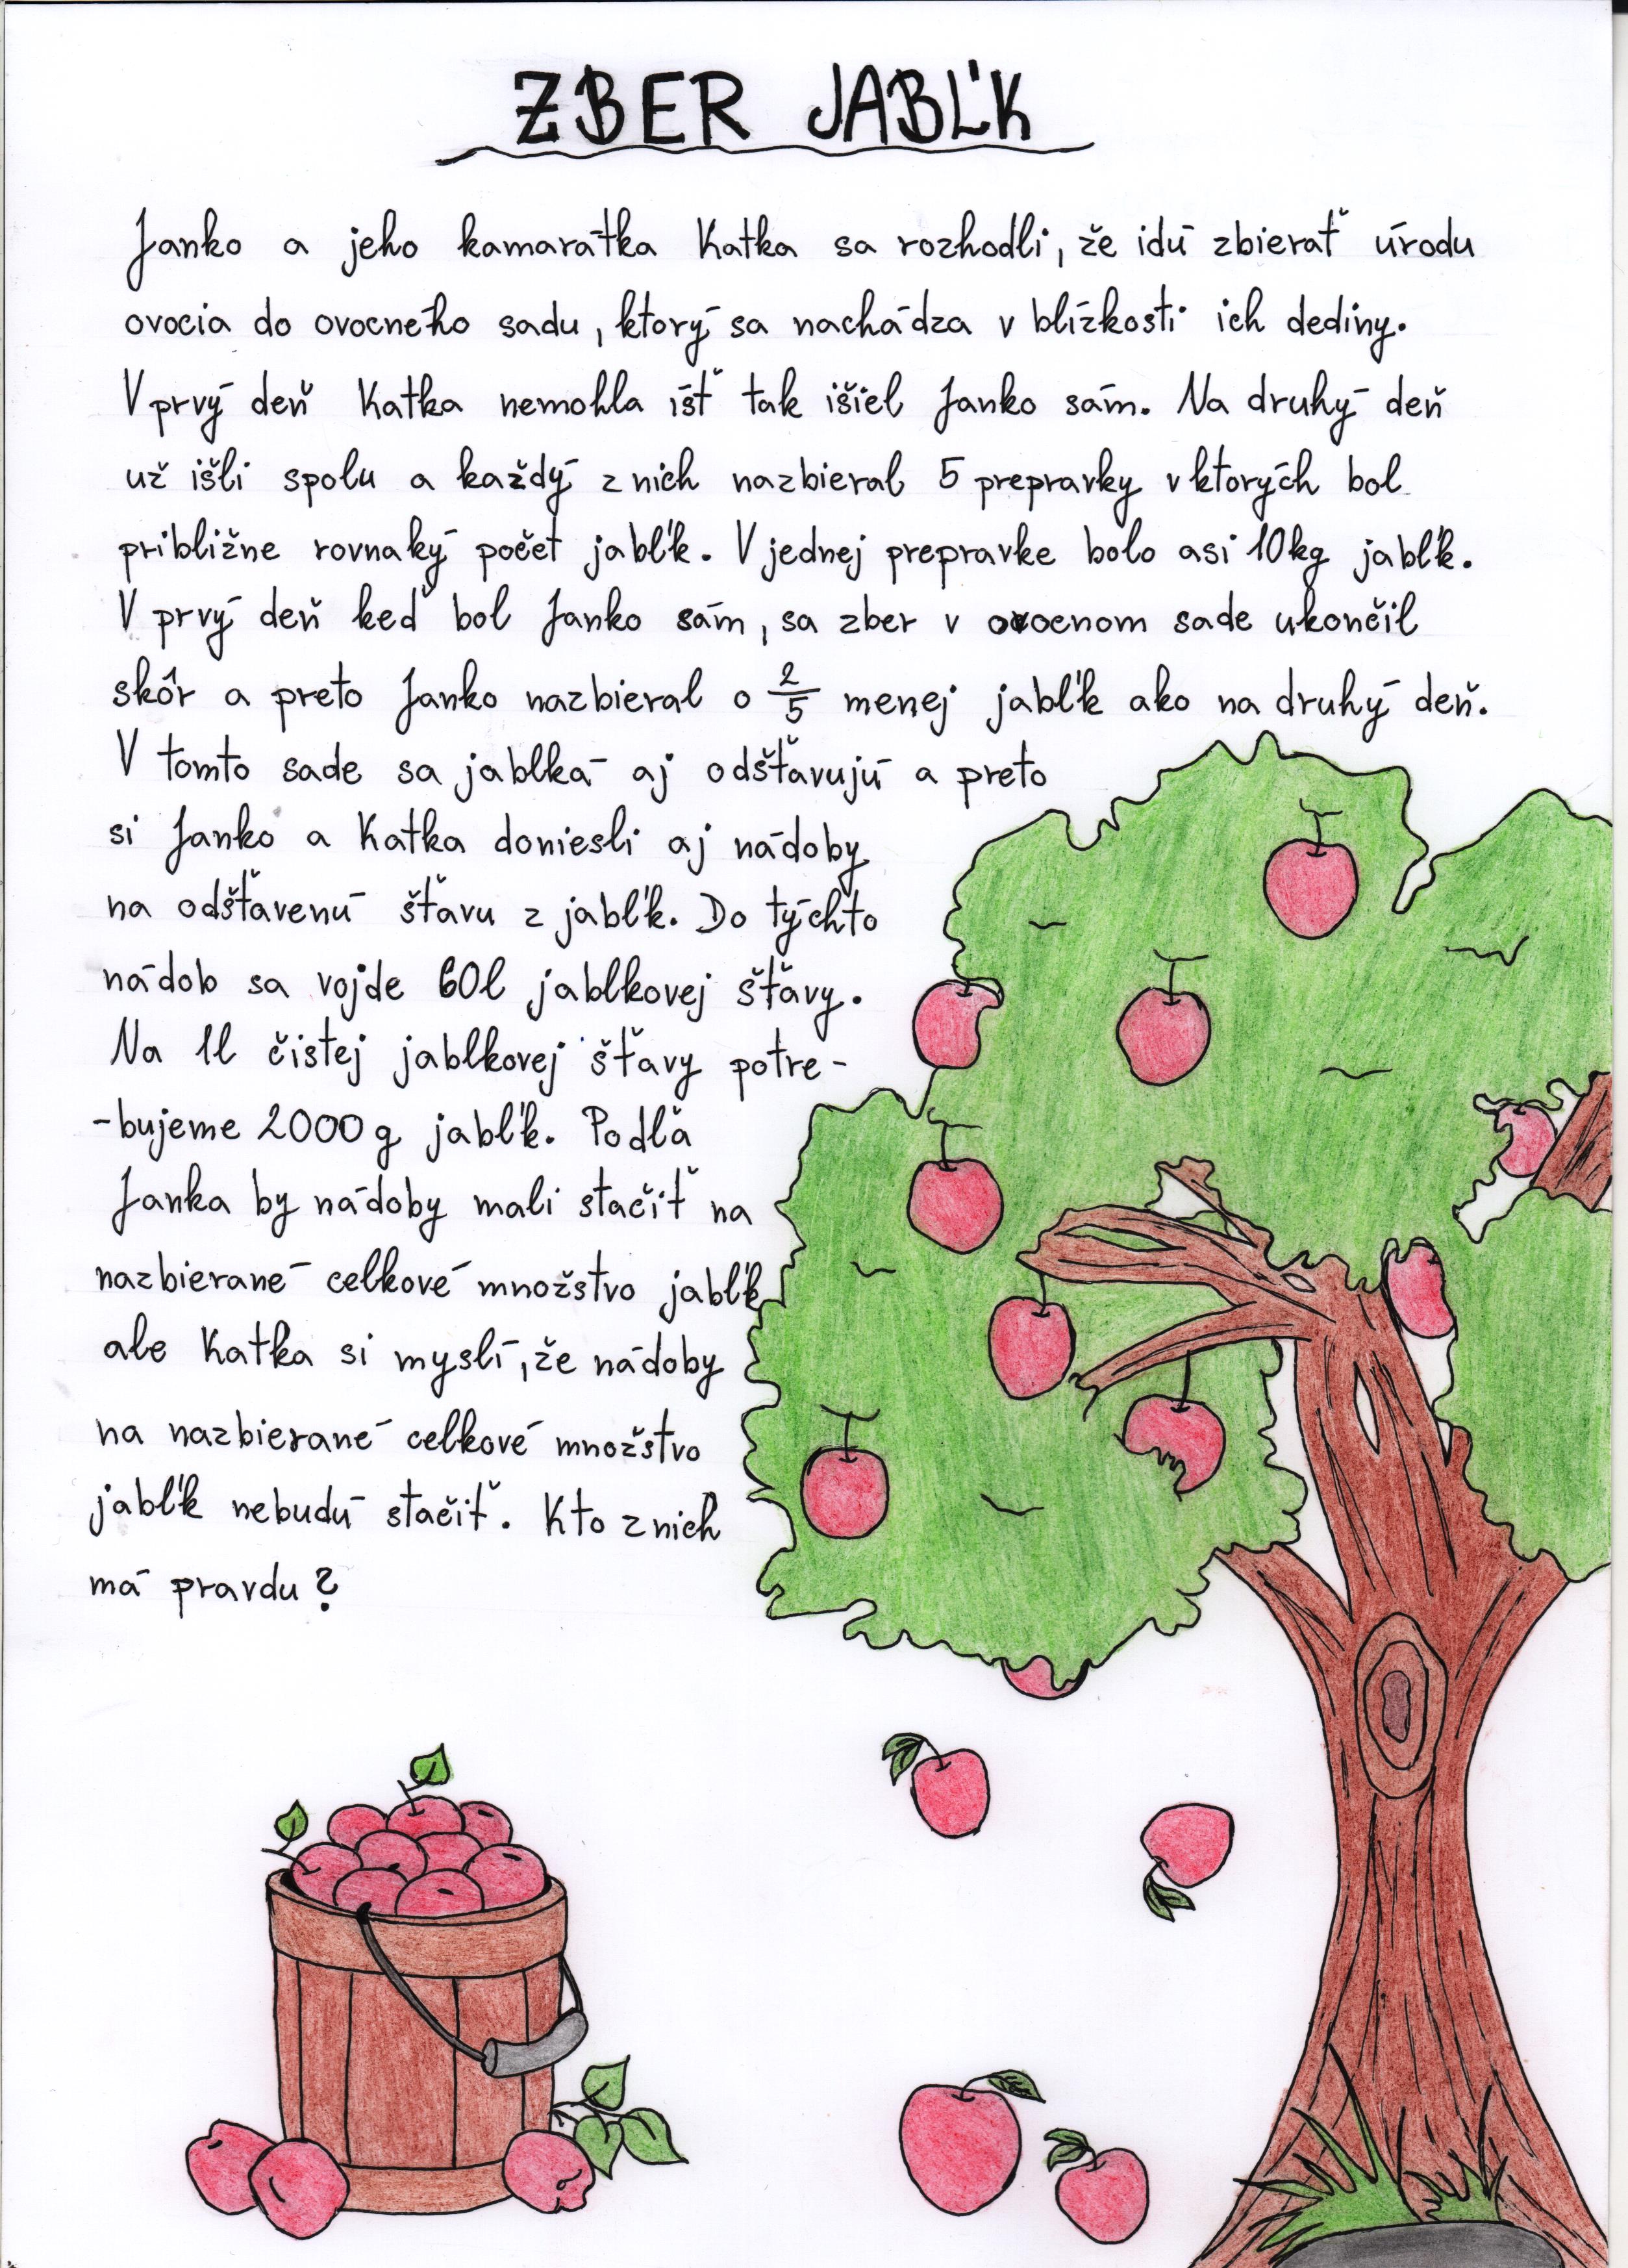 ZBER JABĹK
Janko a jeho kamarátka Katka sa rozhodli, že idú zbierať úrodu
ovocia do ovocného sadu, ktorý sa nachádza v blízkosti ich dediny.
V prvý deň Katka nemohla ísť tak išiel Janko sám. Na druhý deň
už išli spolu a každý z nich nazbieral 5 prepravky v ktorých bol
približne rovnaký počet jabĺk. V jednej prepravke bolo asi 10kg jabĺk.
V prvý deň keď bol Janko sám, sa zber v ovocnom sade ukončil
skôr a preto Janko nazbieral o 2/5 menej jabĺk ako na druhý deň.
V tomto sade sa jablká aj odšťavujú a preto
si Janko a Katka doniesli aj nádoby
na odšťavenú šťavu z jabĺk. Do týchto
nádob sa vojde 60l jablkovej šťavy.
Na 1l čistej jablkovej šťavy potre-
-bujeme 2000g jabĺk. Podľa
Janka by nádoby mali stačiť na
nazbierané celkové množstvo jabĺk,
ale Katka si myslí, že nádoby
na nazbierané celkové množstvo
jabĺk nebudú stačiť. Kto z nich
má pravdu?